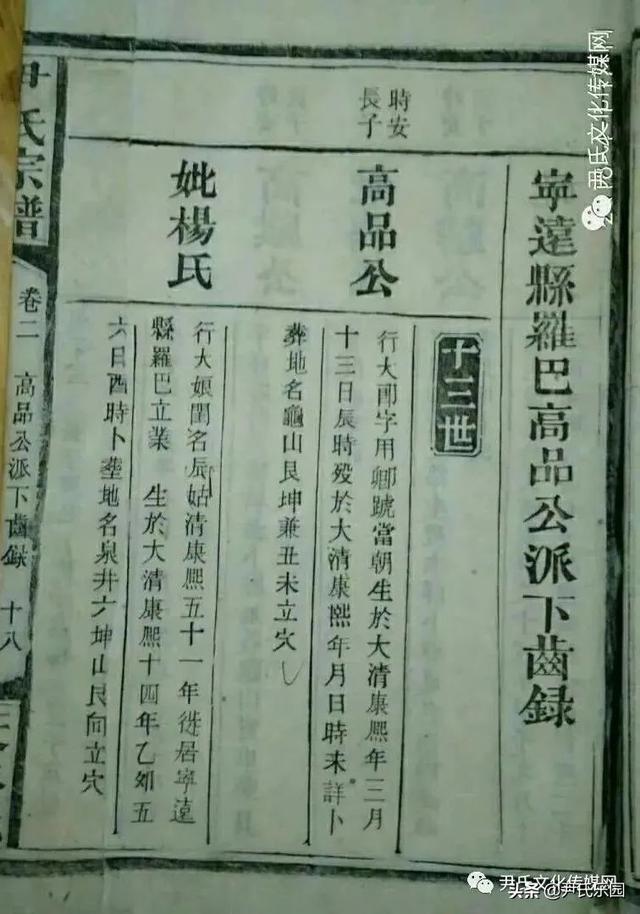 寧遠縣羅巴高品公派下齒録
十三世
時安
長子
高品公
行大郎字用卿號當朝生於大清康熙年三月
十三日辰時歿於大清康熙年月日時未詳卜
葬地名龜山艮坤兼丑未立穴
妣楊氏
行大娘閨名辰姑清康熙五十一年徙居寧遠
縣羅巴立業 生於大清康熙十四年乙卯五
六日酉時卜塟地名泉井六坤山艮向立穴
尹氏宗譜
卷二 高品公派下齒録 十八
尹氏文化传媒网
尹氏文化传媒网
头条 @尹氏乐园